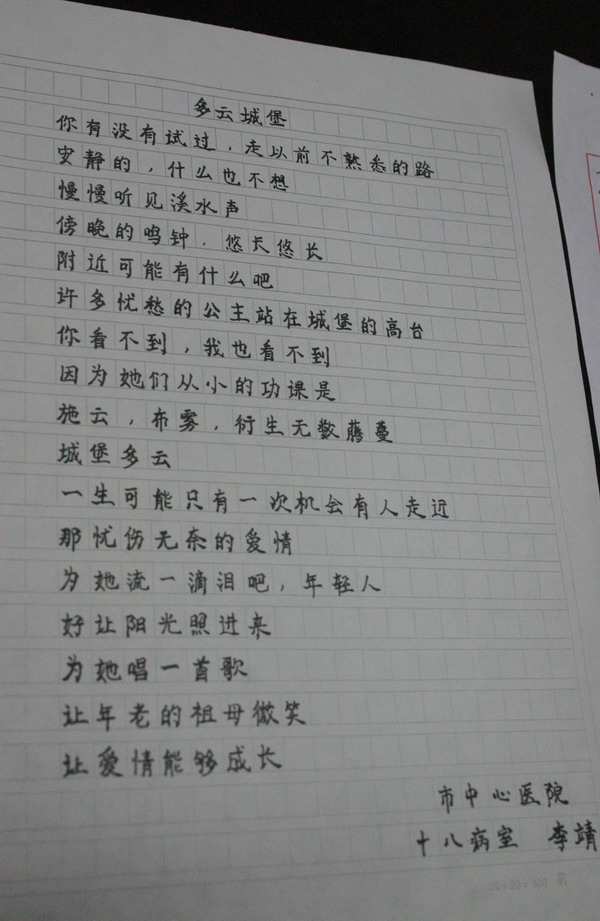 多云城堡
你有没有试过，走以前不熟悉的路
安静的，什么也不想
慢慢听见溪水声
傍晚的鸣钟，悠长悠长
附近可能有什么吧
许多忧愁的公主站在城堡的高台
你看不到，我也看不到
因为她们从小的功课是
施云，布雾，衍生无数藤蔓
城堡多云
一生可能只有一次机会有人走近
那忧伤无奈的爱情
为她流一滴泪吧，年轻人
好让阳光照进来
为她唱一首歌
让年老的祖母微笑
让爱情能够成长
市中心医院
十八病室 李靖
20×20=400 第